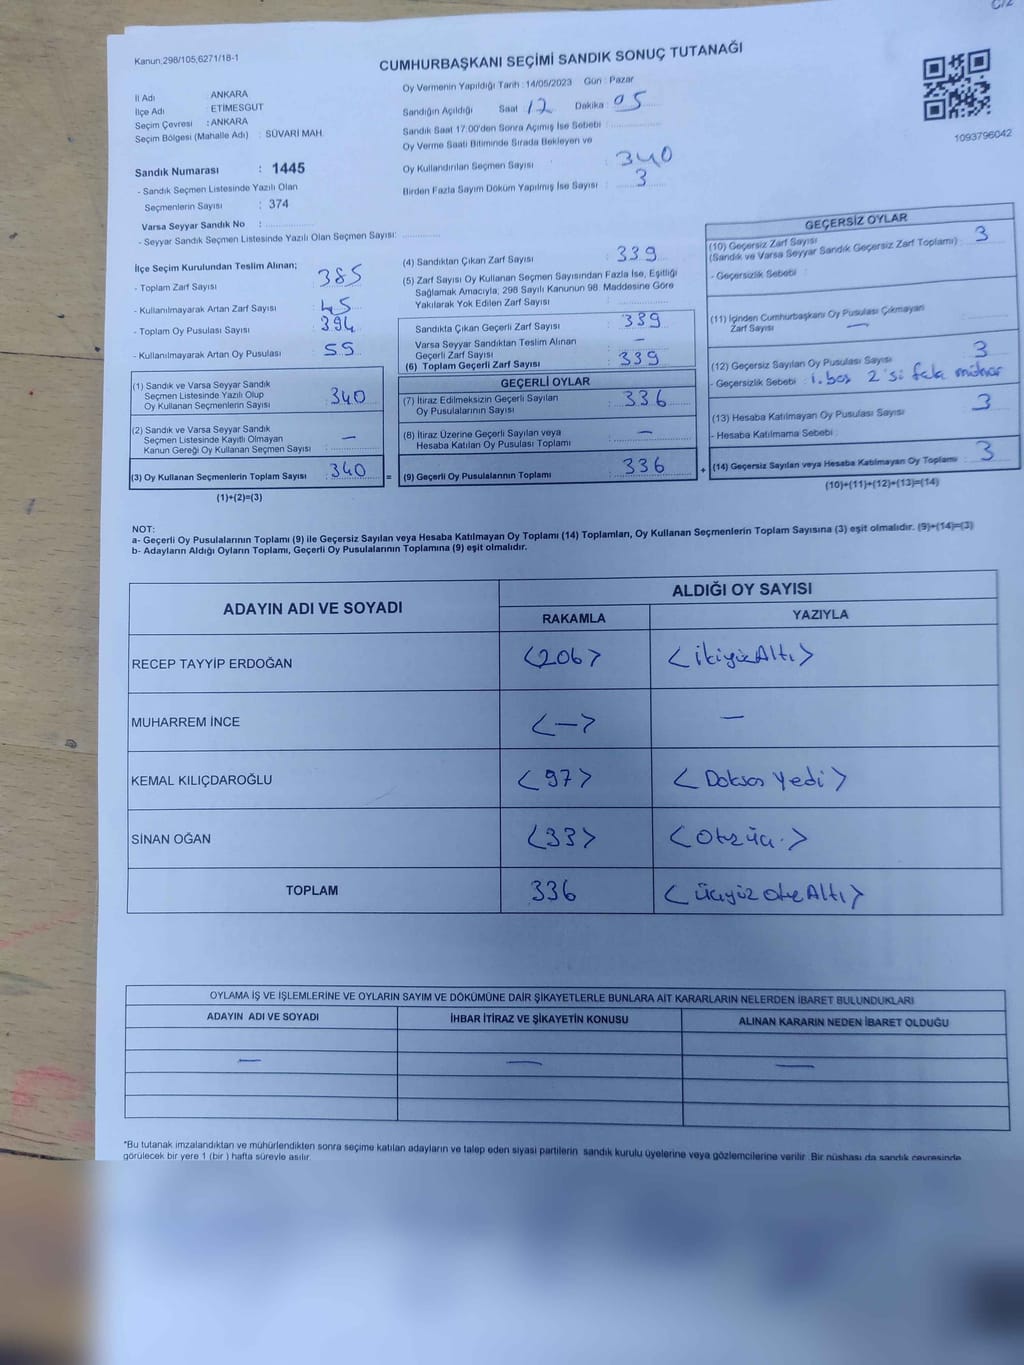 C/2
Kanun,298/105,6271/18-1
CUMHURBAŞKANI SEÇİMİ SANDIK SONUÇ TUTANAĞI
1093796042
İl Adı ANKARA
İlçe Adı : ETİMESGUT
Seçim Çevresi : ANKARA
Seçim Bölgesi (Mahalle Adı) : SÜVARİ MAH.
Sandık Numarası : 1445
- Sandık Seçmen Listesinde Yazılı Olan
Seçmenlerin Sayısı : 374
Varsa Seyyar Sandık No :
- Seyyar Sandık Seçmen Listesinde Yazılı Olan Seçmen Sayısı:
Oy Vermenin Yapıldığı Tarih : 14/05/2023 Gün : Pazar
Sandığın Açıldığı Saat 17 Dakika : 05
Sandık Saat 17:00'den Sonra Açımış İse Sebebi :
Oy Verme Saati Bitiminde Sırada Bekleyen ve
Oy Kullandırılan Seçmen Sayısı : 340
Birden Fazla Sayım Döküm Yapılmış İse Sayısı : 3
İlçe Seçim Kurulundan Teslim Alınan;
- Toplam Zarf Sayısı : 385
- Kullanılmayarak Artan Zarf Sayısı : 45
- Toplam Oy Pusulası Sayısı : 394
- Kullanılmayarak Artan Oy Pusulası : 55
(1) Sandık ve Varsa Seyyar Sandık
Seçmen Listesinde Yazılı Olup
Oy Kullanan Seçmenlerin Sayısı : 340
(2) Sandık ve Varsa Seyyar Sandık
Seçmen Listesinde Kayıtlı Olmayan
Kanun Gereği Oy Kullanan Seçmen Sayısı : —
(3) Oy Kullanan Seçmenlerin Toplam Sayısı : 340 =
(1)+(2)=(3)
(4) Sandıktan Çıkan Zarf Sayısı : 339
(5) Zarf Sayısı Oy Kullanan Seçmen Sayısından Fazla İse, Eşitliği
Sağlamak Amacıyla; 298 Sayılı Kanunun 98. Maddesine Göre
Yakılarak Yok Edilen Zarf Sayısı :
Sandıkta Çıkan Geçerli Zarf Sayısı : 339
Varsa Seyyar Sandıktan Teslim Alınan
Geçerli Zarf Sayısı : —
(6) Toplam Geçerli Zarf Sayısı : 339
GEÇERLİ OYLAR
(7) İtiraz Edilmeksizin Geçerli Sayılan
Oy Pusulalarının Sayısı : 336
(8) İtiraz Üzerine Geçerli Sayılan veya
Hesaba Katılan Oy Pusulası Toplamı : —
(9) Geçerli Oy Pusulalarının Toplamı : 336 +
GEÇERSİZ OYLAR
(10) Geçersiz Zarf Sayısı
(Sandık ve Varsa Seyyar Sandık Geçersiz Zarf Toplamı) : 3
- Geçersizlik Sebebi :
(11) İçinden Cumhurbaşkanı Oy Pusulası Çıkmayan
Zarf Sayısı : —
(12) Geçersiz Sayılan Oy Pusulası Sayısı : 3
- Geçersizlik Sebebi : 1. boş 2'si fala mühür
(13) Hesaba Katılmayan Oy Pusulası Sayısı : 3
- Hesaba Katılmama Sebebi :
(14) Geçersiz Sayılan veya Hesaba Katılmayan Oy Toplamı : 3
(10)+(11)+(12)+(13)=(14)
NOT:
a- Geçerli Oy Pusulalarının Toplamı (9) ile Geçersiz Sayılan veya Hesaba Katılmayan Oy Toplamı (14) Toplamları, Oy Kullanan Seçmenlerin Toplam Sayısına (3) eşit olmalıdır. (9)+(14)=(3)
b- Adayların Aldığı Oyların Toplamı, Geçerli Oy Pusulalarının Toplamına (9) eşit olmalıdır.
ADAYIN ADI VE SOYADI
ALDIĞI OY SAYISI
RAKAMLA YAZIYLA
RECEP TAYYİP ERDOĞAN <206> <İkiyüzAltı>
MUHARREM İNCE <—> —
KEMAL KILIÇDAROĞLU <97> <Doksa Yedi>
SİNAN OĞAN <33> <Otzüç.>
TOPLAM 336 <üçyüz otuzAltı>
OYLAMA İŞ VE İŞLEMLERİNE VE OYLARIN SAYIM VE DÖKÜMÜNE DAİR ŞİKAYETLERLE BUNLARA AİT KARARLARIN NELERDEN İBARET BULUNDUKLARI
ADAYIN ADI VE SOYADI İHBAR İTİRAZ VE ŞİKAYETİN KONUSU ALINAN KARARIN NEDEN İBARET OLDUĞU
— — —
*Bu tutanak imzalandıktan ve mühürlendikten sonra seçime katılan adayların ve talep eden siyasi partilerin sandık kurulu üyelerine veya gözlemcilerine verilir. Bir nüshası da sandık çevresinde
görülecek bir yere 1 (bir ) hafta süreyle asılır.